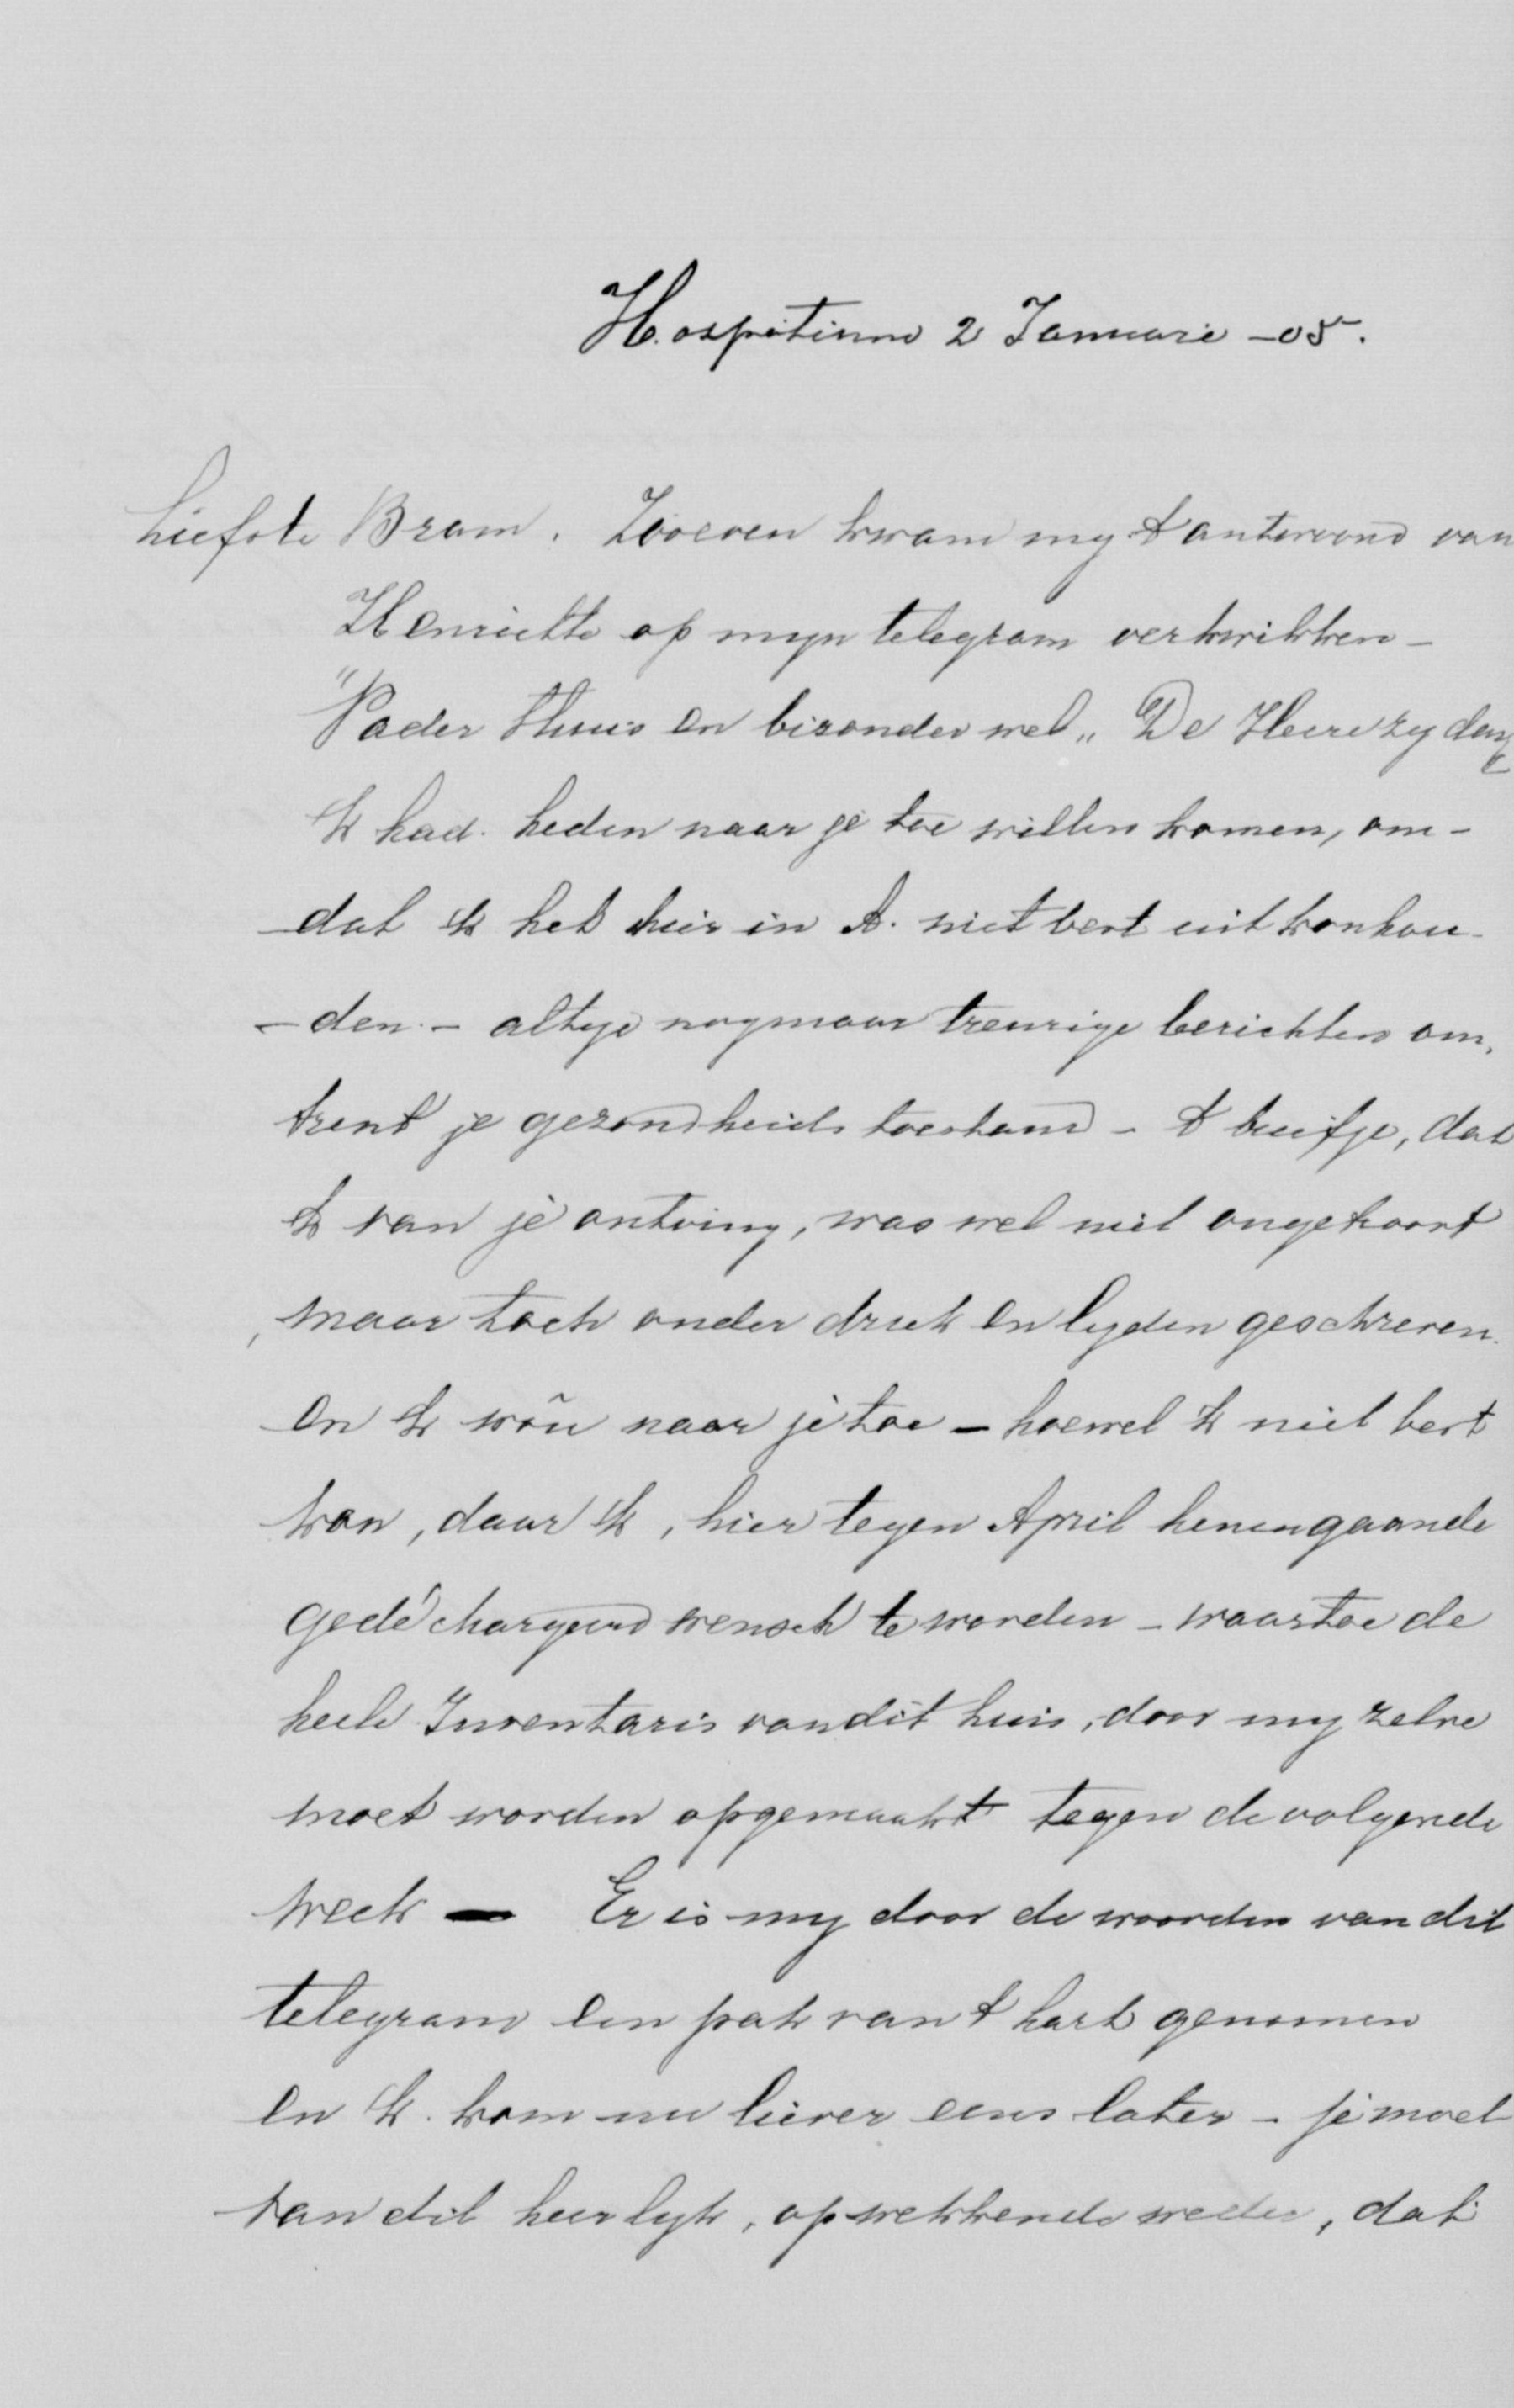 Hospitium 2 Januarie -05.
Liefste Bram. Zooeven kwam my 't antwoord van
Henriette op myn telegram verkwikken -
"Vader thuis en bizonder wel" De Heere zy dank
Ik had heden naar je toe willen komen, om-
-dat ik het hier in A. niet best uit kon hou-
-den. - altyd nog maar treurige berichten om,
trent je gezondheids toestand - 't briefje, dat
ik van je ontving, was wel niet ongekoort
maar toch onder druk en lyden geschreven.
en ik wou naar je toe - hoewel ik niet best
kon, daar ik, hier tegen April henengaande
gedéchargeerd wensch te worden - waartoe de
heele Inventaris van dit huis, door my zelve
moet worden opgemaakt tegen de volgende
week - Er is my door de woorden van dit
telegram een pak van 't hart genomen
en ik kom nu liever eens later - je moet
van dit heerlyk, opwekkende weder, dat